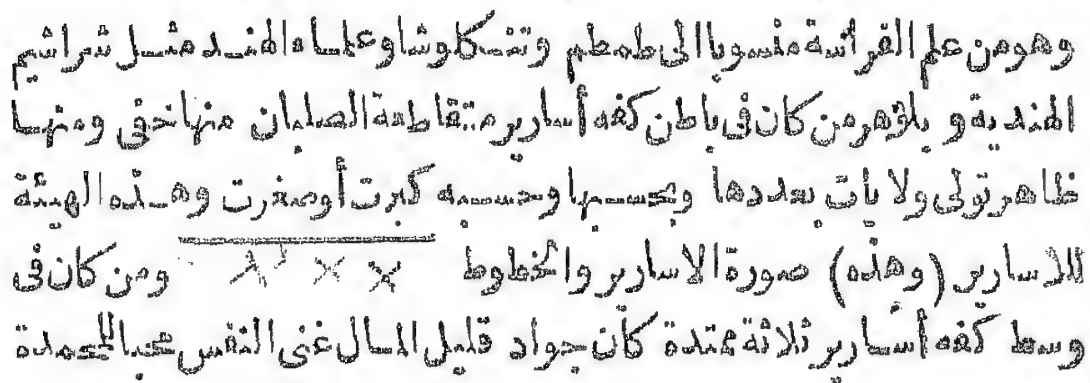 وهو من علم الفراسة منسوبا الى طمطم وتنكلوشا وعلماء الهند مثل شراشيم
الهندية و بلوهر من كان فى باطن كفه أسارير متقاطعة الصلبان منها خفى ومنها
ظاهر تولى ولايات بعددها وبحسبها وحسبه كبرت أوصغرت وهذه الهيئة
للاسارير (وهذه) صورة الاسارير والخطوط ومن كان فى
وسط كفه أسارير ثلاثة ممتدة كان جواد قليل المال غنى النفس محبا للمحمدة